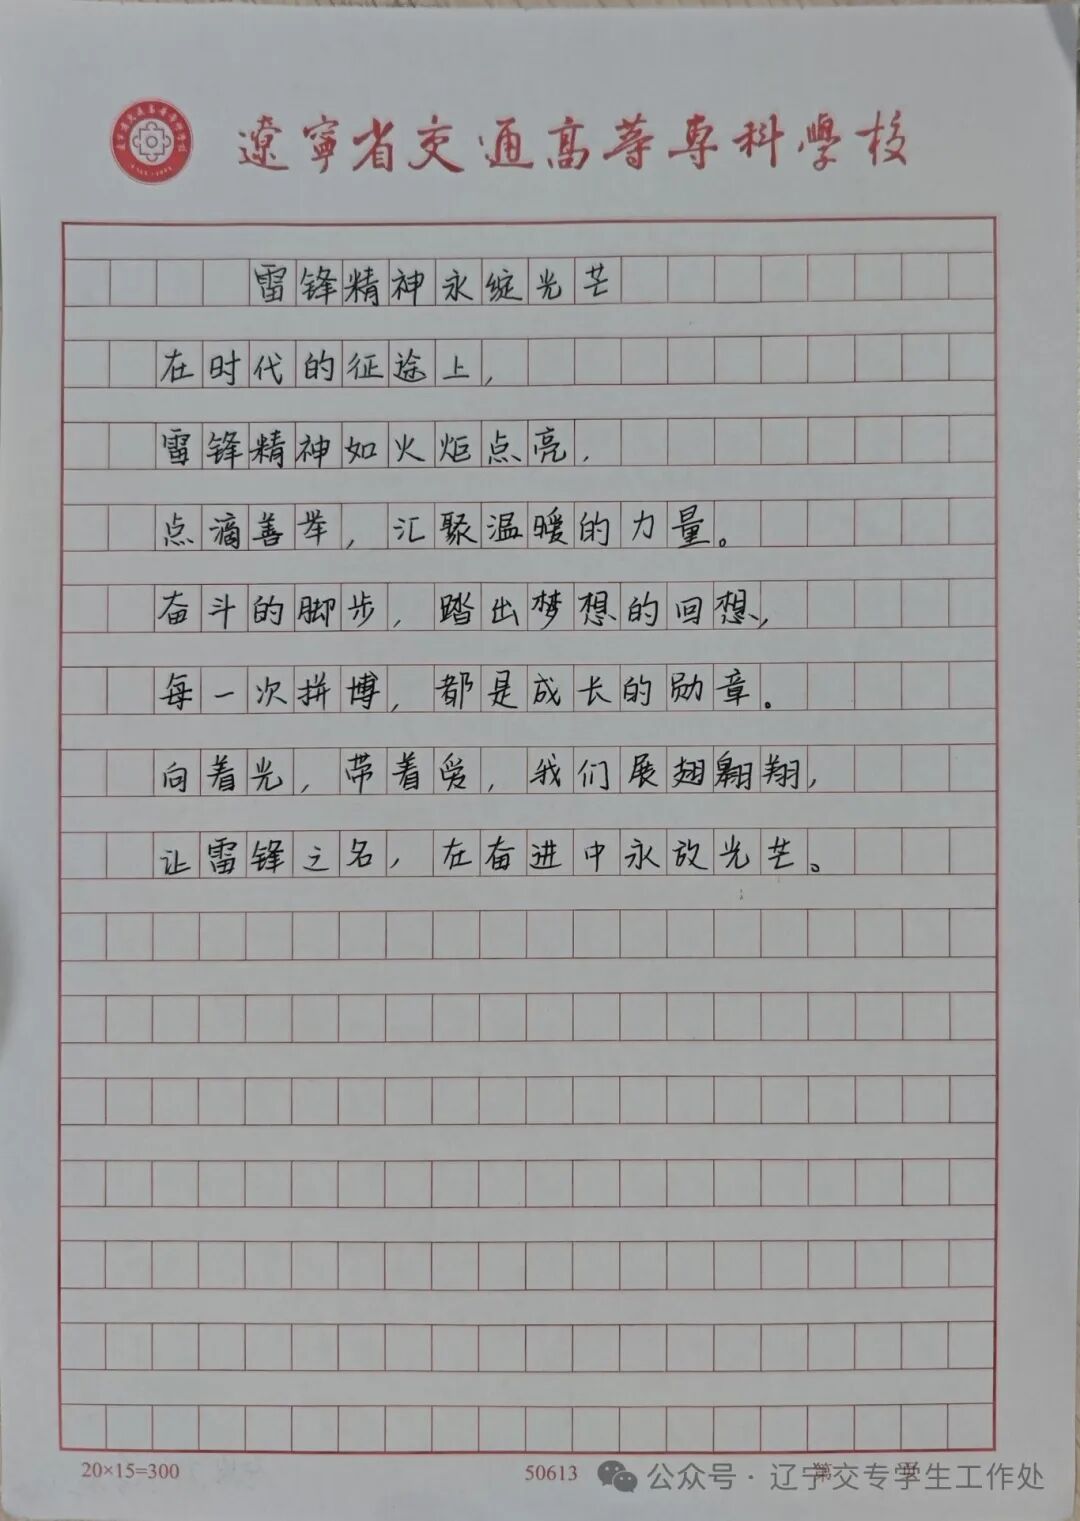 遼寧省交通高等專科學校
雷锋精神永绽光芒
在时代的征途上,
雷锋精神如火炬点亮,
点滴善举,汇聚温暖的力量。
奋斗的脚步,踏出梦想的回想,
每一次拼博,都是成长的勋章。
向着光,带着爱,我们展翅翱翔,
让雷锋之名,在奋进中永放光芒。
20×15=300
50613
公众号·辽宁交专学生工作处